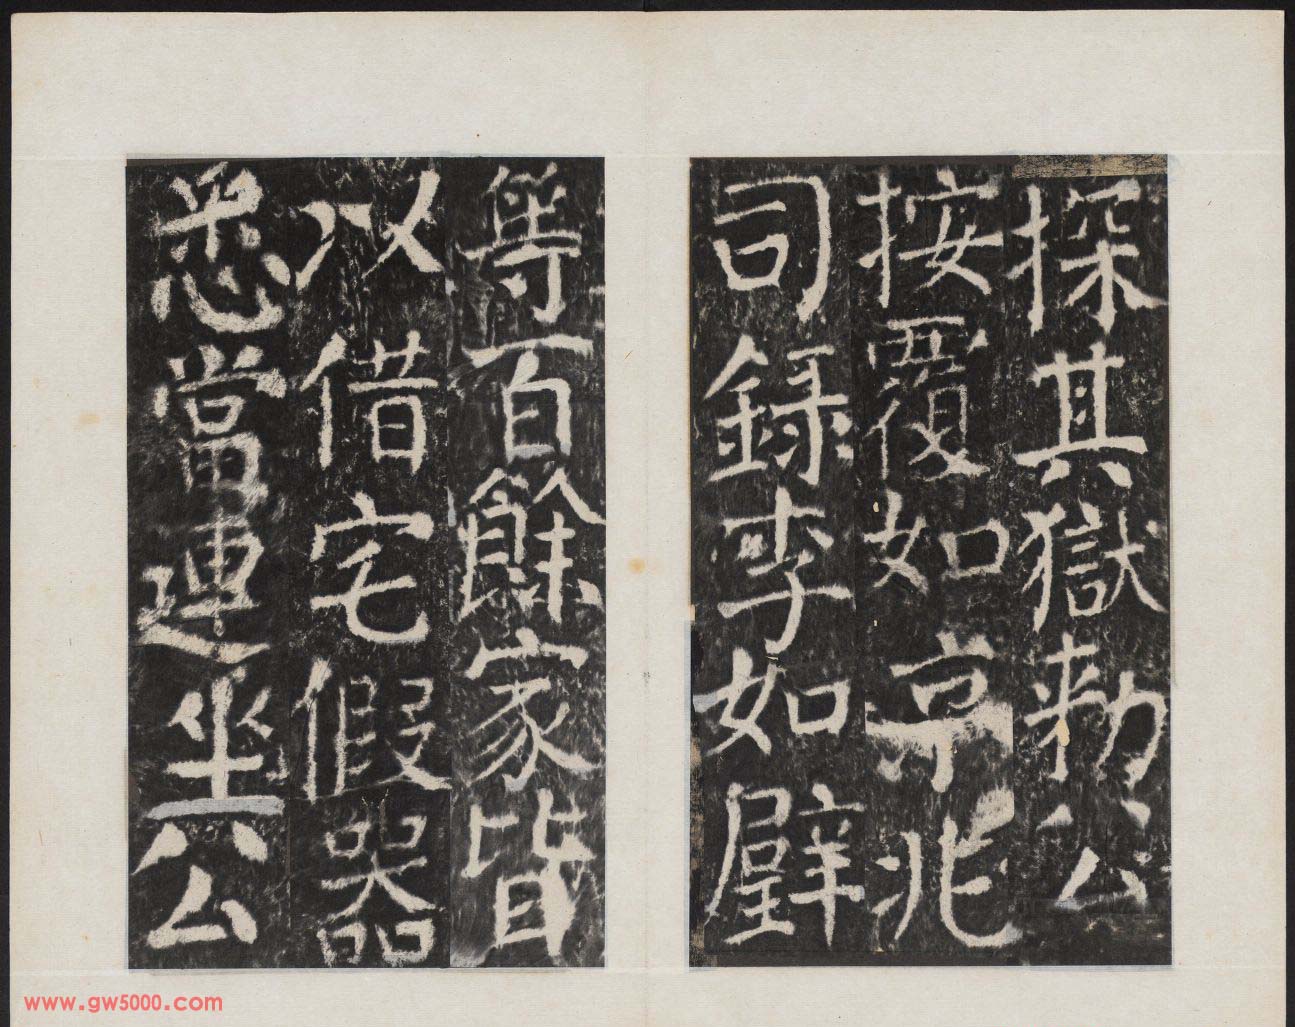 探其獄勑公
按覆如京兆
司錄李如璧
等百餘家皆
以借宅假器
悉當連坐公
www.gw5000.com